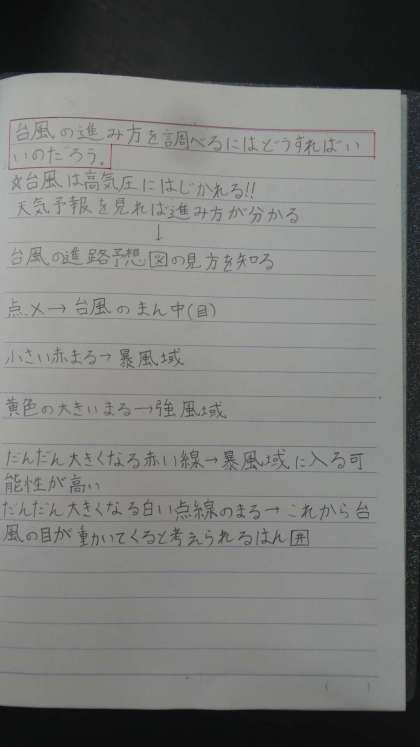 台風の進み方を調べるにはどうすればい
いのだろう。
☆台風は高気圧にはじかれる!!
天気予報を見れば進み方が分かる
↓
台風の進路予想図の見方を知る
点×→台風のまん中(目)
小さい赤まる→暴風域
黄色の大きいまる→強風域
だんだん大きくなる赤い線→暴風域に入る可
能性が高い
だんだん大きくなる白い点線のまる→これから台
風の目が動いてくると考えられるはん囲
( )